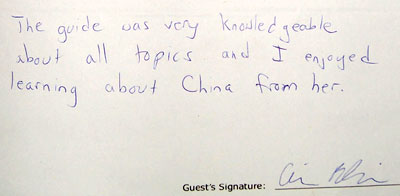 The guide was very knowledgeable
about all topics and I enjoyed
learning about China from her.
Guest's Signature: